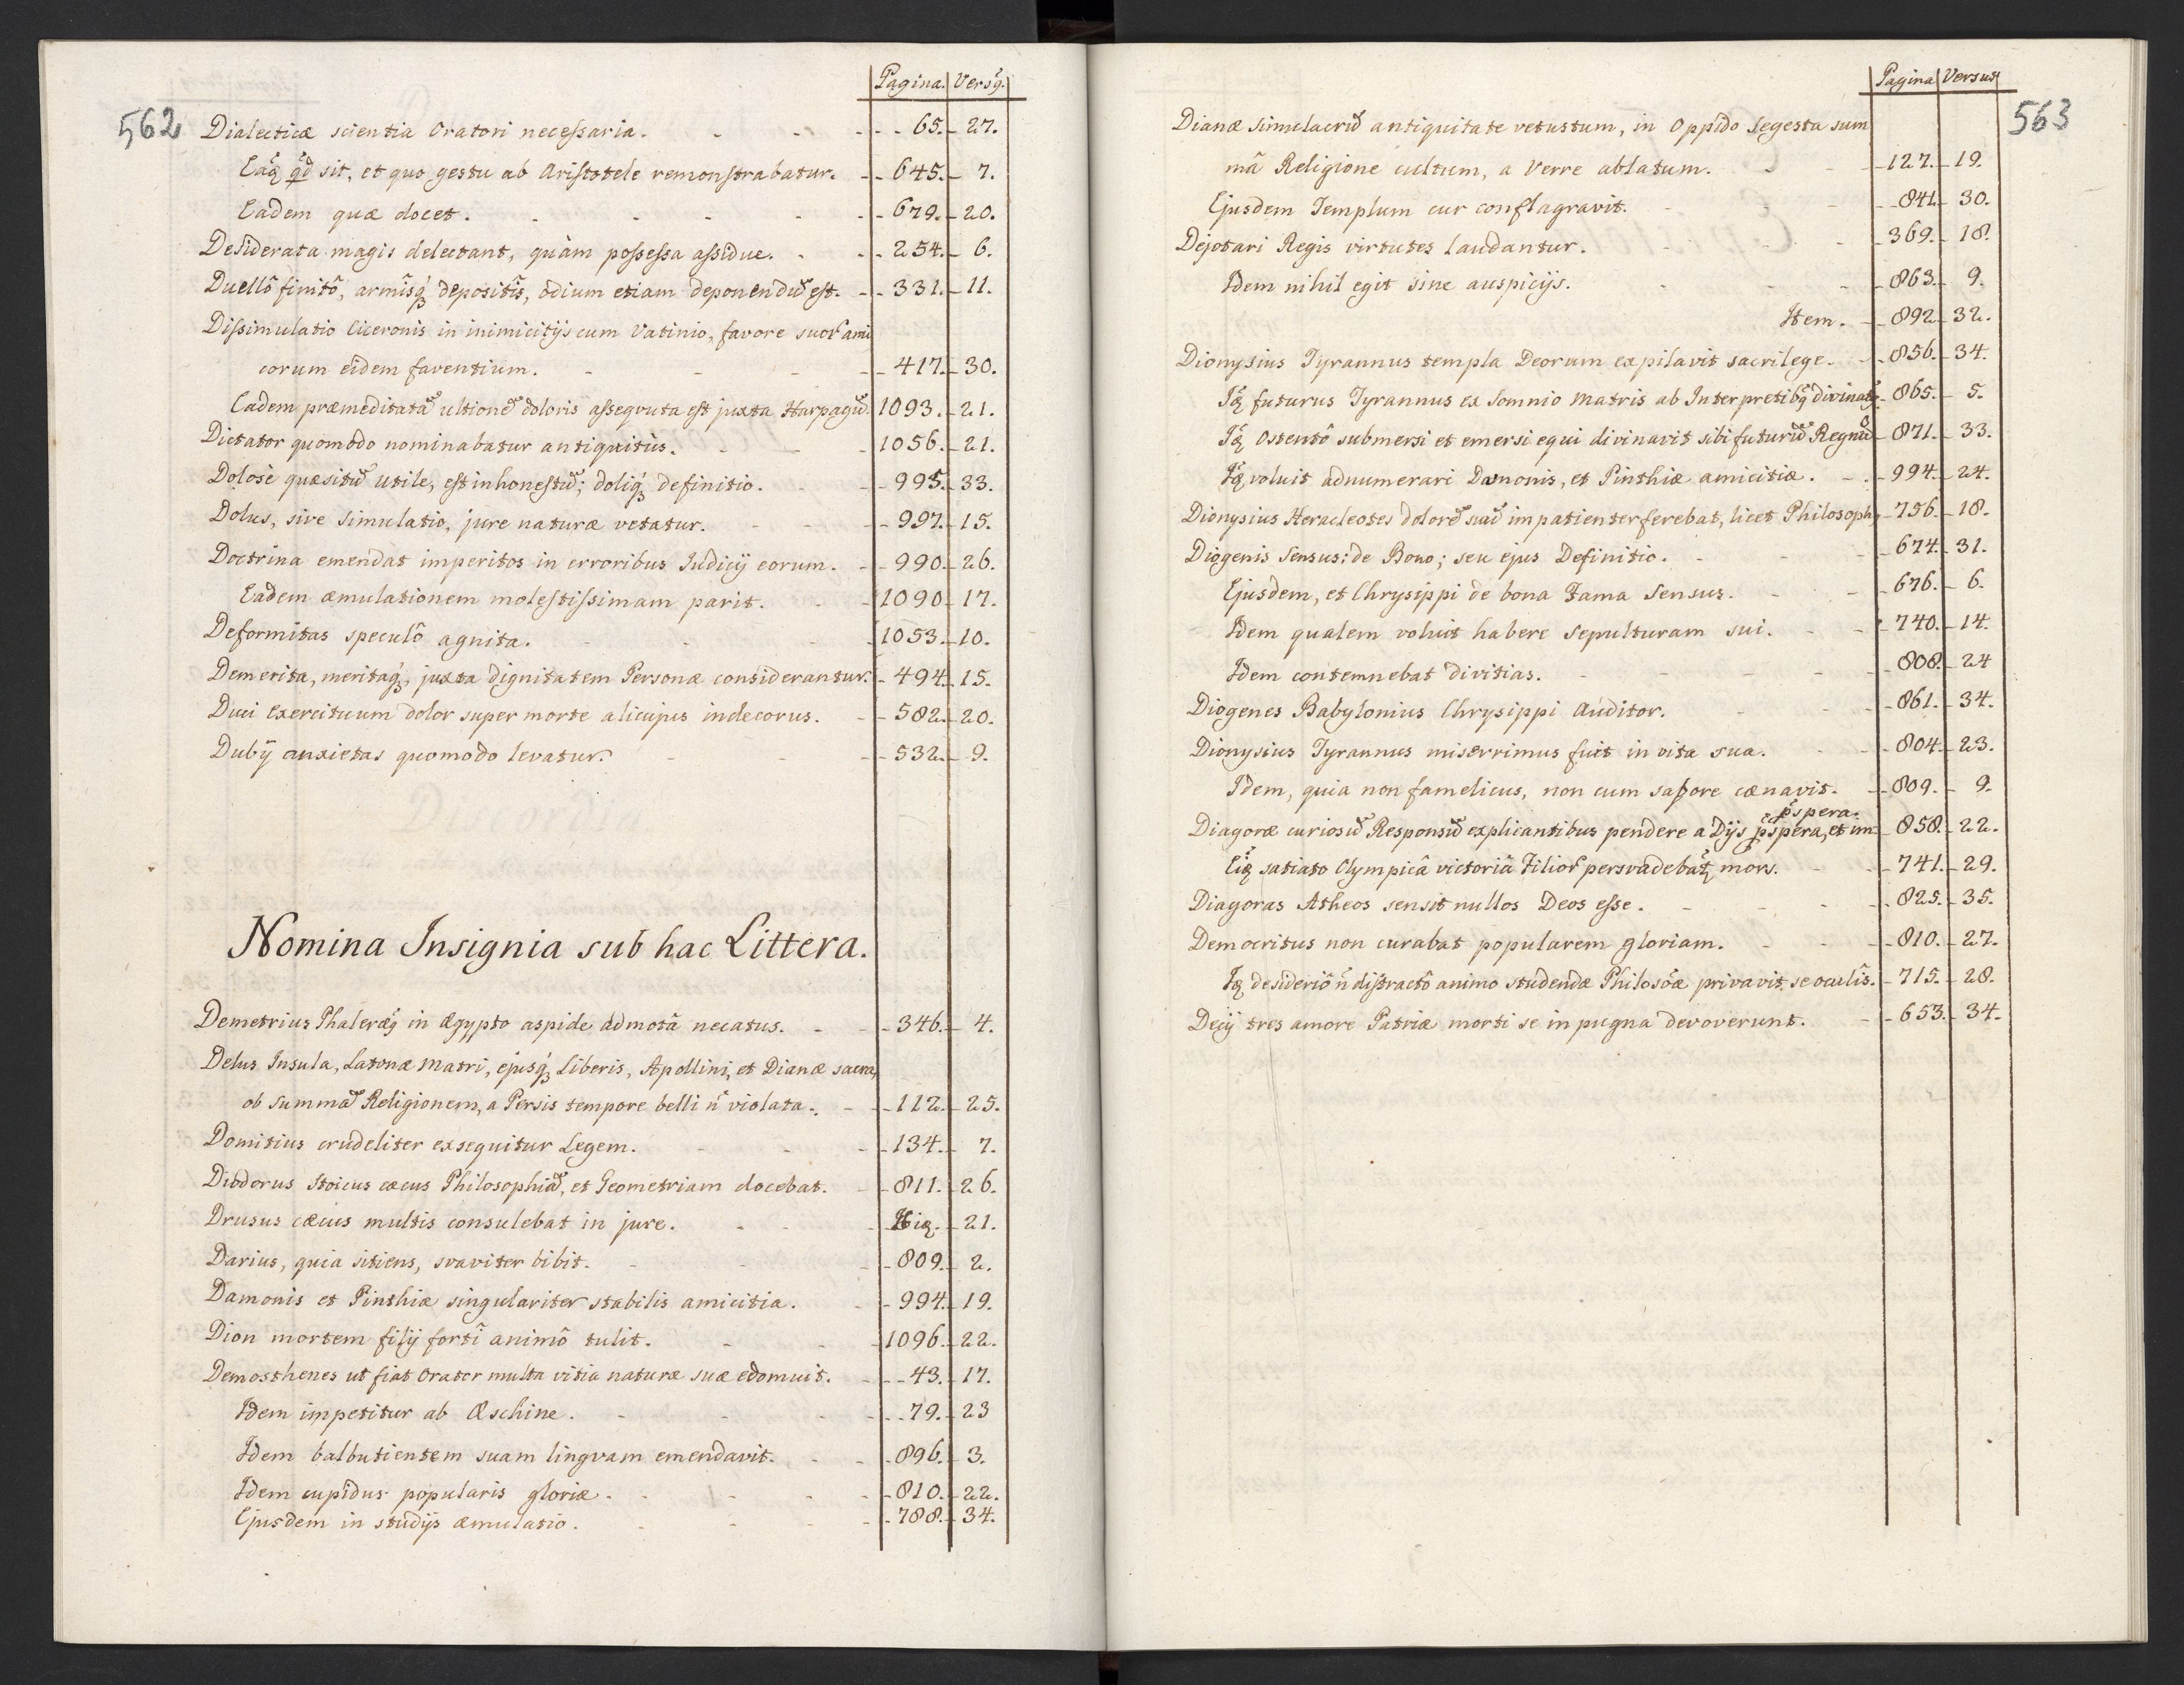 562
Pagina. Versq̃.
Dialecticæ scientia Oratori necessaria. - - - - 65. - 27.
Eáq; qd̃ sit, et quo gestu ab Aristotele remonstrabatur. - - 645. - 7.
Eadem quæ docet. - - - - - 679. - 20.
Desiderata magis delectant, quàm possessa assidue. - - 254. - 6.
Duellô finitô, armîsq́; depositîs, odium etiam deponendũ est. - - 331. - 11.
Dissimulatio Ciceronis in inimicitijs cum Vatinio, favore suoꝝ ami
corum eidem faventium. - - - - 417. - 30.
Eadem præmeditatã ultionẽ doloris asseqvuta est juxta Harpagũ. 1093. - 21.
Dictator quomodo nominabatur antiquitùs. - - - 1056. - 21.
Dolosè quæsitũ utile, est inhonestũ; doliq́; definitio. - - 995. - 33.
Dolus, sive simulatio, jure naturæ vetatur. - - - 997. - 15.
Doctrina emendat imperitos in erroribus Judicij eorum. - - 990. - 26.
Eadem æmulationem molestissimam parit. - - 1090 - 17.
Deformitas speculô agnita. - - - 1053. - 10.
Demerita, meritaq́;, juxta dignitatem Personæ considerantur. - 494. - 15.
Duci Exercituum dolor super morte alicujus indecorus. - - 582. - 20.
Dubij anxietas quomodo levatur. - - - - 532. - 9.
Nomina Insignia sub hac Littera.
Demetrius Phaleræq̃ in Ægypto aspide admotâ necatus. - - - 346. - 4.
Delus Insula, Latonæ Matri, ejusq́; Liberis, Apollini, et Dianæ sacra,
ob summã Religionem, a Persis tempore belli ñ violata. - - - 112. - 25.
Domitius crudeliter exsequitur Legem. - - - 134. - 7.
Diodorus Stoicus cæcus Philosophiã, et Geometriam docebat. - - 811. - 26.
Drusus cæcus multis consulebat in jure. - - - - 21.
Darius, quia sitiens, svaviter bibit. - - - 809. - 2.
Damonis et Pinthiæ singulariter stabilis amicitia. - - 994. - 19.
Dion mortem filij fortî animô tulit. - - - 1096. - 22.
Demosthenes ut fiat Orator multa vitia naturæ suæ edomuit. - - - 43. - 17.
Idem impetitur ab Æschine. - - - - - 79. - 23
Idem balbutientem suam lingvam emendavit. - - - 896. - 3.
Idem cupidus popularis gloriæ. - - - - 810. - 22.
Ejusdem in studijs æmulatio. - - - - 788. - 34.
Pagina Versus
563
Dianæ simulacrũ antiquitate vetustum, in Oppido Segesta sum
mâ Religione cultum, a Verre ablatum. - - - 127. - 19.
Ejusdem Templum cur conflagravit. - - - - 841. - 30.
Dejotari Regis virtutes laudantur. - - - - 369. - 18.
Idem nihil egit sine auspicijs. - - - - 863. - 9.
Item. - - 892 - 32.
Dionysius Tyrannus templa Deorum expilavit sacrilege. - - 856. - 34.
Iq̃; futurus Tyrannus ex Somnio Matris ab Interpretibq̃ divinatq̃. - 865. - 5.
Iq̃; Ostentô submersi et emersi equi divinavit sibi futurũ Regnũ - 871. - 33.
Iq̃; voluit adnumerari Damonis, et Pinthiæ amicitiæ. - - - 994. - 24.
Dionysius Heracleotes dolorẽ suũ impatienter ferebat, licet Philosophq̃ - 756. - 18.
Diogenis Sensus: de Bono; seu ejus Definitio. - - - 674. - 31.
Ejusdem, et Chrysippi de bona Fama Sensus. - - - 676. - 6.
Idem qualem voluit habere sepulturam sui. - - - 740. - 14.
Idem contemnebat divitias. - - - - - 808. - 24
Diogenes Babylonius Chrysippi Auditor. - - - - 861. - 34.
Dionysius Tyrannus miserrimus fuit in vita sua. - - - 804. - 23.
Idem, quia non famelicus, non cum sapore cænavit. - - 809. - 9.
p̃spera.
Diagoræ curiosũ Responsũ explicantibus pendere a Dijs p̃spera, et im - 858. - 22.
Eiq̃; satiato Olympicâ victoriâ Filioꝝ persvadebat̃; mors. - - - 741. - 29.
Diagoras Atheos sensit nullos Deos esse. - - - - 825. - 35.
Democritus non curabat popularem gloriam. - - - - 810. - 27.
Iq̃; desideriô ñ distractô animo studendæ Philosõæ privavit se oculîs. - 715. - 28.
Decij tres amore Patriæ morti se in pugna devoverunt. - - 653. - 34.